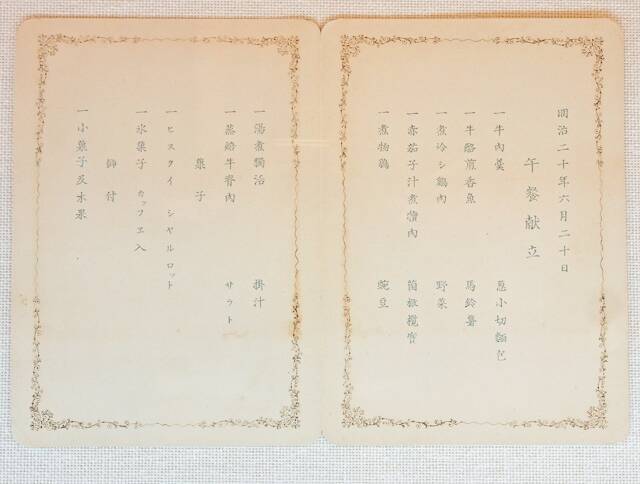 明治二十年六月二十日
午餐献立
一牛肉羹 葱小切麺包
一牛酪煎香魚 馬鈴薯
一煮冷シ鶏肉 野菜
一赤茄子汁煮犢肉 菌橄欖實
一煮物鶉 豌豆
一湯煮獨活 掛汁
一蒸焙牛脊肉 サラト
菓子
一ヒスクイ シヤルロット
一氷菓子 カッフヱ入
飾付
一小菓子及水果